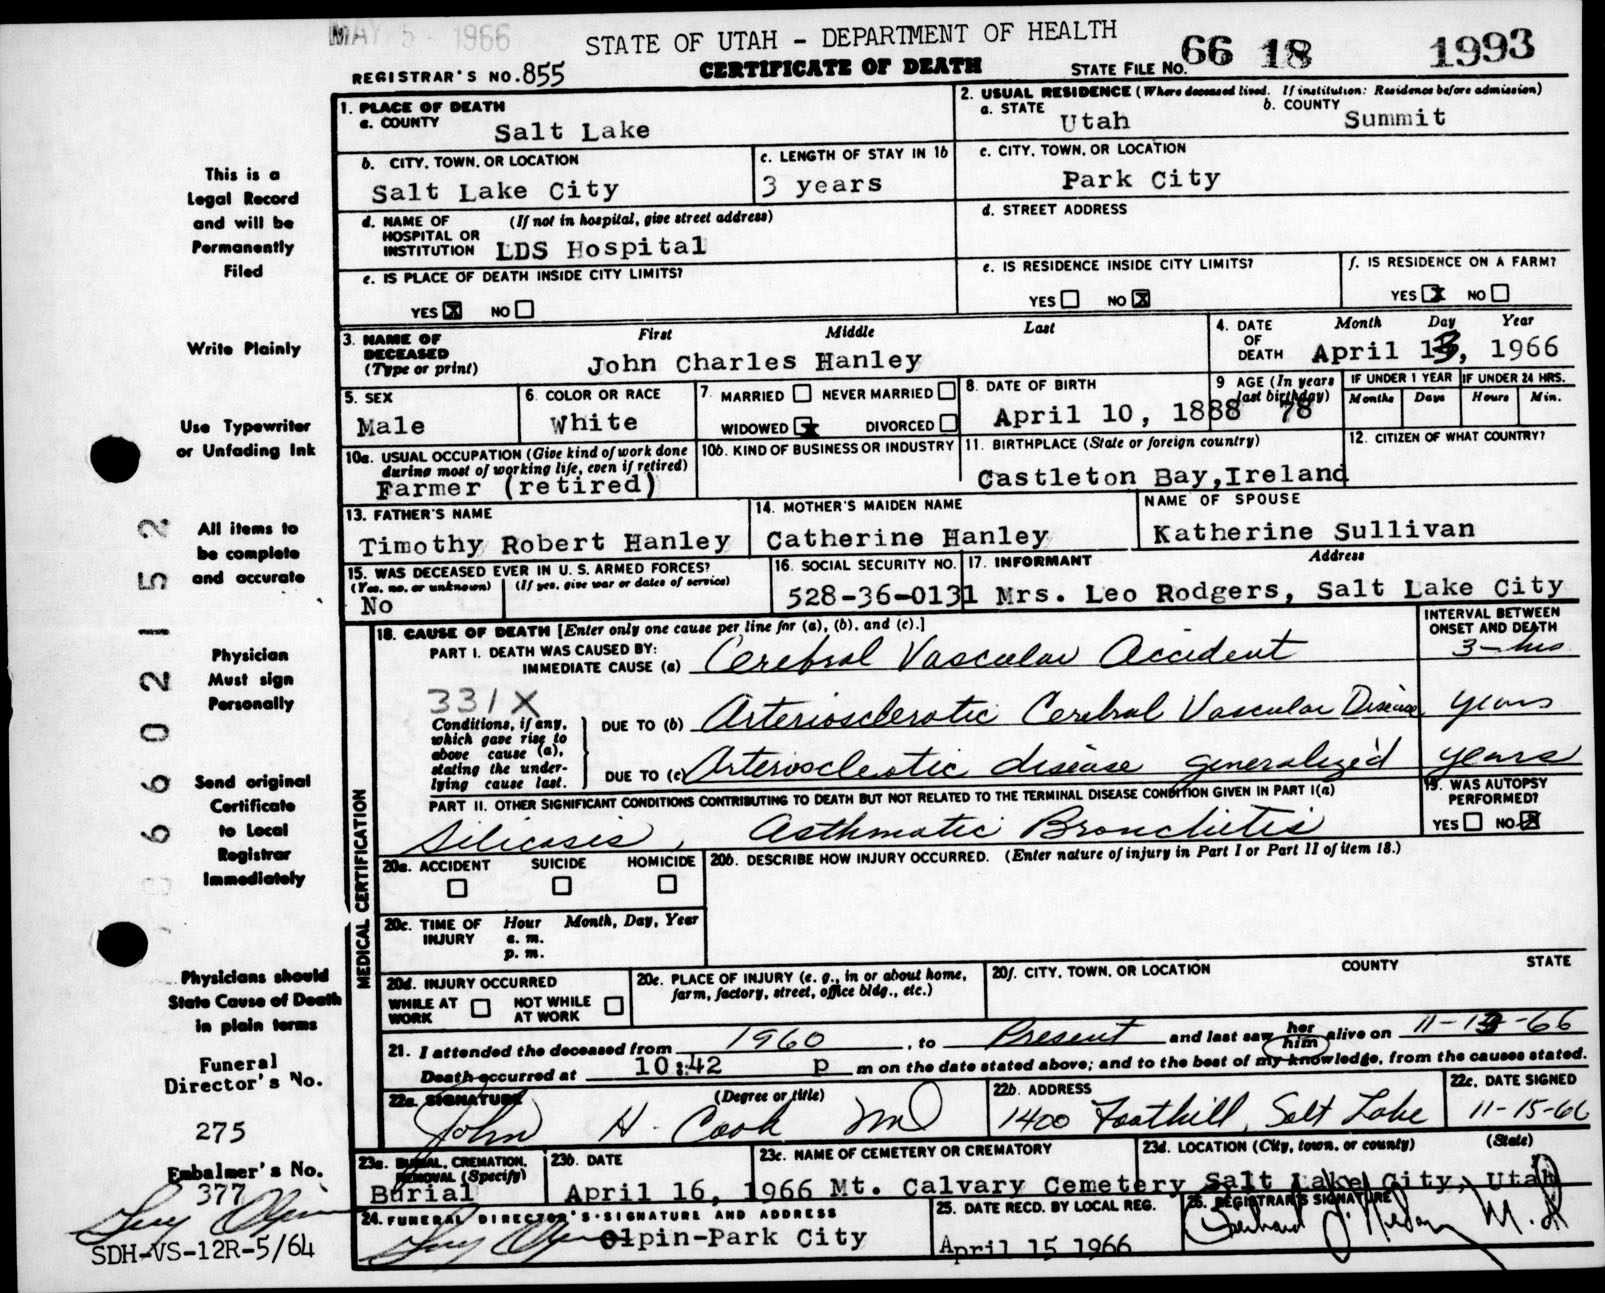 MAY 5 - 1966
STATE OF UTAH - DEPARTMENT OF HEALTH
REGISTRAR'S NO. 855 CERTIFICATE OF DEATH STATE FILE NO. 66 18 1993
1. PLACE OF DEATH
a. COUNTY Salt Lake
2. USUAL RESIDENCE (Where deceased lived. If institution: Residence before admission)
a. STATE Utah b. COUNTY Summit
b. CITY, TOWN, OR LOCATION Salt Lake City
c. LENGTH OF STAY IN 1b 3 years
c. CITY, TOWN, OR LOCATION Park City
d. NAME OF HOSPITAL OR INSTITUTION (If not in hospital, give street address) LDS Hospital
d. STREET ADDRESS
e. IS PLACE OF DEATH INSIDE CITY LIMITS?
YES X NO
e. IS RESIDENCE INSIDE CITY LIMITS?
YES NO X
f. IS RESIDENCE ON A FARM?
YES X NO
3. NAME OF DECEASED (Type or print)
First Middle Last
John Charles Hanley
4. DATE OF DEATH Month Day Year
April 13, 1966
5. SEX
Male
6. COLOR OR RACE
White
7. MARRIED NEVER MARRIED
WIDOWED X DIVORCED
8. DATE OF BIRTH
April 10, 1888
9 AGE (In years last birthday)
78
IF UNDER 1 YEAR
Months Days
IF UNDER 24 HRS.
Hours Min.
10a. USUAL OCCUPATION (Give kind of work done during most of working life, even if retired)
Farmer (retired)
10b. KIND OF BUSINESS OR INDUSTRY
11. BIRTHPLACE (State or foreign country)
Castleton Bay, Ireland
12. CITIZEN OF WHAT COUNTRY?
13. FATHER'S NAME
Timothy Robert Hanley
14. MOTHER'S MAIDEN NAME
Catherine Hanley
NAME OF SPOUSE
Katherine Sullivan
15. WAS DECEASED EVER IN U. S. ARMED FORCES?
(Yes, no, or unknown) (If yes, give war or dates of service)
No
16. SOCIAL SECURITY NO.
528-36-0131
17. INFORMANT Address
Mrs. Leo Rodgers, Salt Lake City
MEDICAL CERTIFICATION
18. CAUSE OF DEATH [Enter only one cause per line for (a), (b), and (c).]
INTERVAL BETWEEN ONSET AND DEATH
PART I. DEATH WAS CAUSED BY:
IMMEDIATE CAUSE (a) Cerebral Vascular Accident 3-hrs
331X
Conditions, if any, which gave rise to above cause (a), stating the underlying cause last.
DUE TO (b) Arteriosclerotic Cerebral Vascular Disease years
DUE TO (c) Arteriosclerotic disease generalized years
PART II. OTHER SIGNIFICANT CONDITIONS CONTRIBUTING TO DEATH BUT NOT RELATED TO THE TERMINAL DISEASE CONDITION GIVEN IN PART I(a)
Silicosis, Asthmatic Bronchitis
19. WAS AUTOPSY PERFORMED?
YES NO X
20a. ACCIDENT SUICIDE HOMICIDE
20b. DESCRIBE HOW INJURY OCCURRED. (Enter nature of injury in Part I or Part II of item 18.)
20c. TIME OF INJURY Hour Month, Day, Year
a. m.
p. m.
20d. INJURY OCCURRED
WHILE AT WORK NOT WHILE AT WORK
20e. PLACE OF INJURY (e. g., in or about home, farm, factory, street, office bldg., etc.)
20f. CITY, TOWN, OR LOCATION COUNTY STATE
21. I attended the deceased from 1960, to Present and last saw her him alive on 11-13-66
Death occurred at 10:42 p m on the date stated above; and to the best of my knowledge, from the causes stated.
22a. SIGNATURE (Degree or title)
John H. Cook MD
22b. ADDRESS
1400 Foothill, Salt Lake
22c. DATE SIGNED
11-15-66
23a. BURIAL, CREMATION, REMOVAL (Specify)
Burial
23b. DATE
April 16, 1966
23c. NAME OF CEMETERY OR CREMATORY
Mt. Calvary Cemetery
23d. LOCATION (City, town, or county) (State)
Salt Lake City, Utah
24. FUNERAL DIRECTOR'S SIGNATURE AND ADDRESS
Olpin-Park City
25. DATE RECD. BY LOCAL REG.
April 15 1966
26. REGISTRAR'S SIGNATURE
M.D.
This is a
Legal Record
and will be
Permanently
Filed
Write Plainly
Use Typewriter
or Unfading Ink
All items to
be complete
and accurate
Physician
Must sign
Personally
Send original
Certificate
to Local
Registrar
Immediately
Physicians should
State Cause of Death
in plain terms
Funeral
Director's No.
275
Embalmer's No.
377
SDH-VS-12R-5/64
6602152